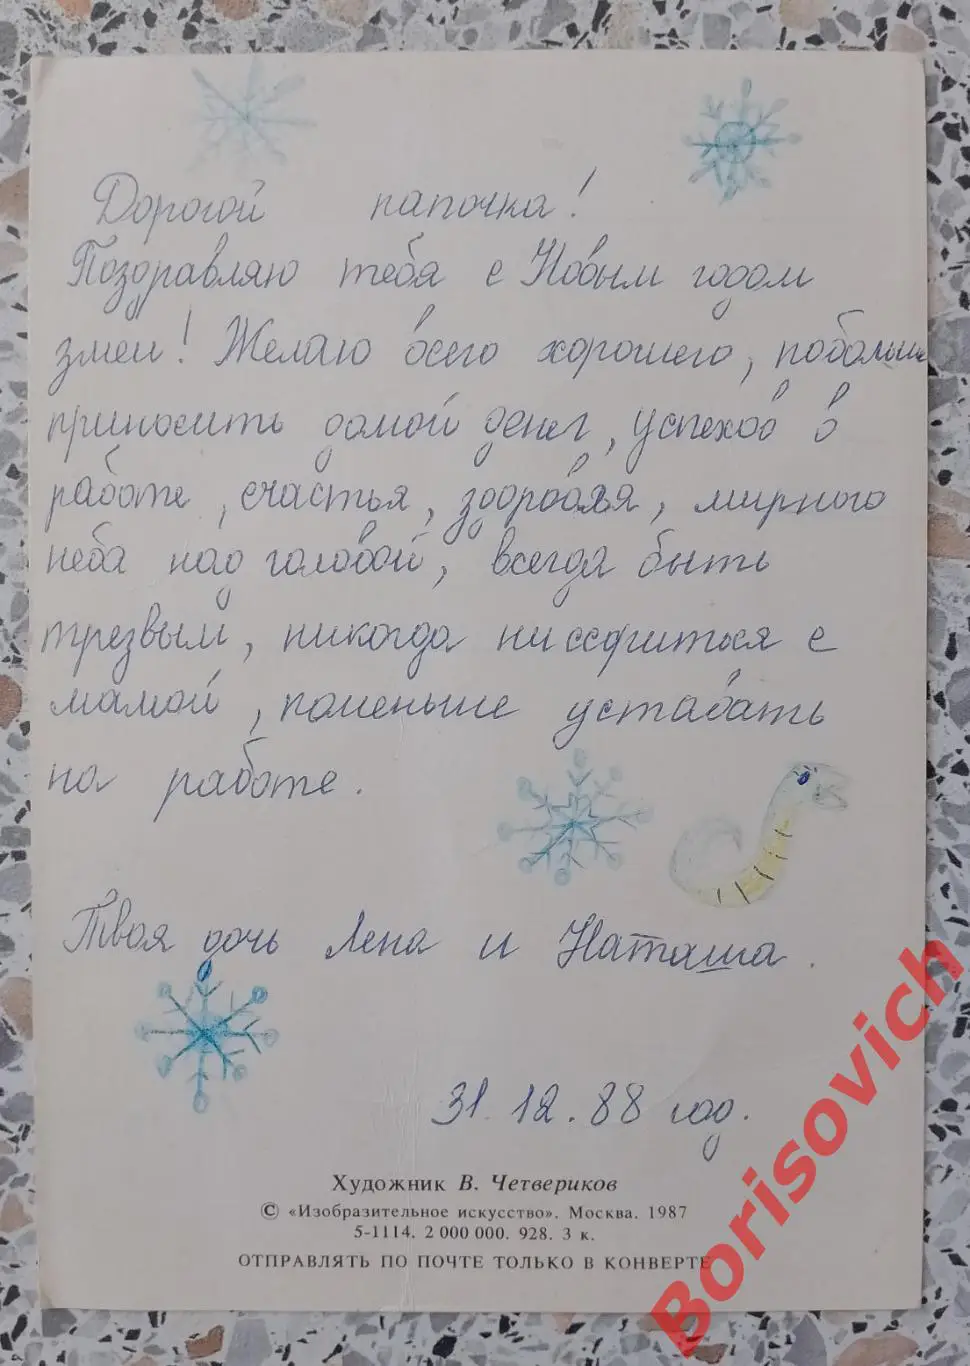 Дорогой папочка!
Поздравляю тебя с Новым годом
змеи! Желаю всего хорошего, побольше
приносить домой денег, успехов в
работе, счастья, здоровья, мирного
неба над головой, всегда быть
трезвым, никогда ни ссориться с
мамой, поменьше уставать
на работе.
Твоя дочь Лена и Наташа.
31.12.88 год.
Художник В. Четвериков
© «Изобразительное искусство». Москва. 1987
5-1114. 2 000 000. 928. 3 к.
ОТПРАВЛЯТЬ ПО ПОЧТЕ ТОЛЬКО В КОНВЕРТЕ
Borisovich